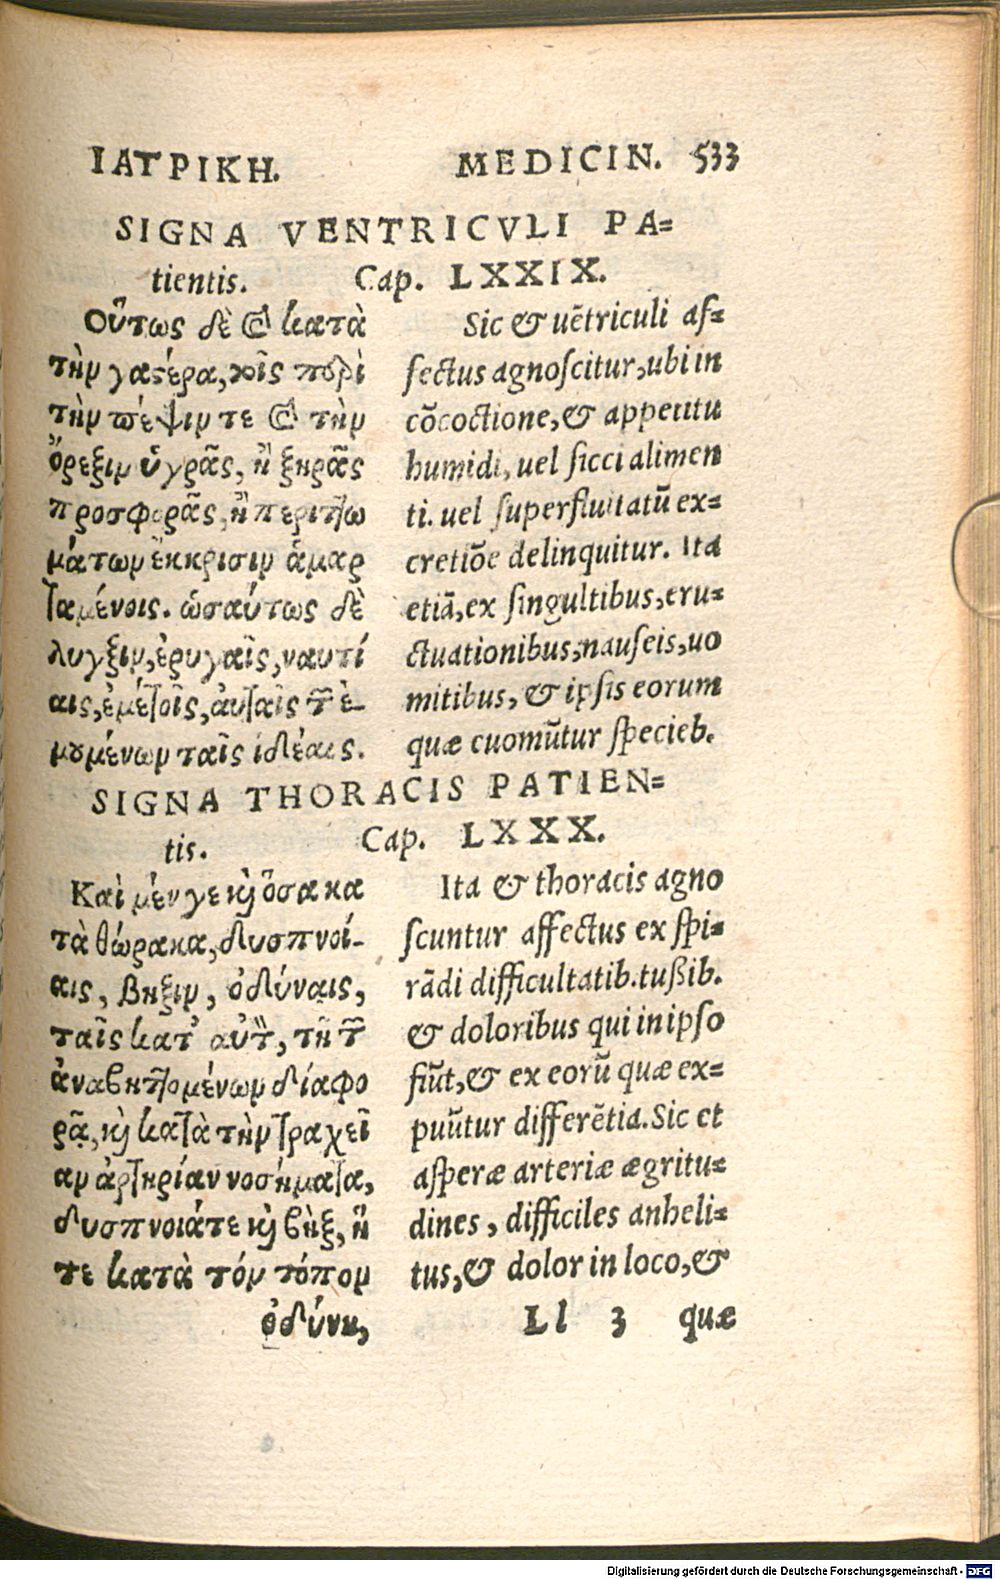 ΙΑΤΡΙΚΗ. MEDICIN. 533
SIGNA VENTRICVLI PA=
tientis. Cap. LXXIX.
Οὕτως δὲ καὶ κατὰ
τὴν γαστέρα, τοῖς περὶ
τὴν πέψιν τε καὶ τὴν
ὄρεξιν ὑγρᾶς, ἢ ξηρᾶς
προσφορᾶς, ἢ περιττω
μάτων ἔκκρισιν ἁμαρ
ταμένοις. ὡσαύτως δὲ
λυγξιν, ἐρυγαῖς, ναυτί
αις, ἐμέτοις, αὐταῖς τῶν ἐ-
μουμένων ταῖς ἰδέαις.
Sic & uētriculi af=
fectus agnoscitur, ubi in
cōcoctione, & appetitu
humidi, uel sicci alimen
ti. uel superfluitatū ex=
cretiōe delinquitur. Ita
etiā, ex singultibus, eru=
ctuationibus, nauseis, uo
mitibus, & ipsis eorum
quæ euomūtur specieb.
SIGNA THORACIS PATIEN=
tis. Cap. LXXX.
Καὶ μέν γε καὶ ὅσα κα
τὰ θώρακα, δυσπνοί-
αις, βηξιν, ὀδύναις,
ταῖς κατ' αὐτὸν, τῇ τῶν
ἀναβηττομένων διαφο
ρᾷ, καὶ κατὰ τὴν τραχεῖ
αν ἀρτηρίαν νοσήματα,
δυσπνοιάτε καὶ βὴξ, ἥ
τε κατὰ τόν τόπον
ὀδύνη,
Ita & thoracis agno
scuntur affectus ex spi=
rādi difficultatib. tußib.
& doloribus qui in ipso
fiūt, & ex eorū quæ ex=
puūtur differētia. Sic et
asperæ arteriæ ægritu=
dines, difficiles anheli=
tus, & dolor in loco, &
Ll 3 quæ
Digitalisierung gefördert durch die Deutsche Forschungsgemeinschaft - DFG